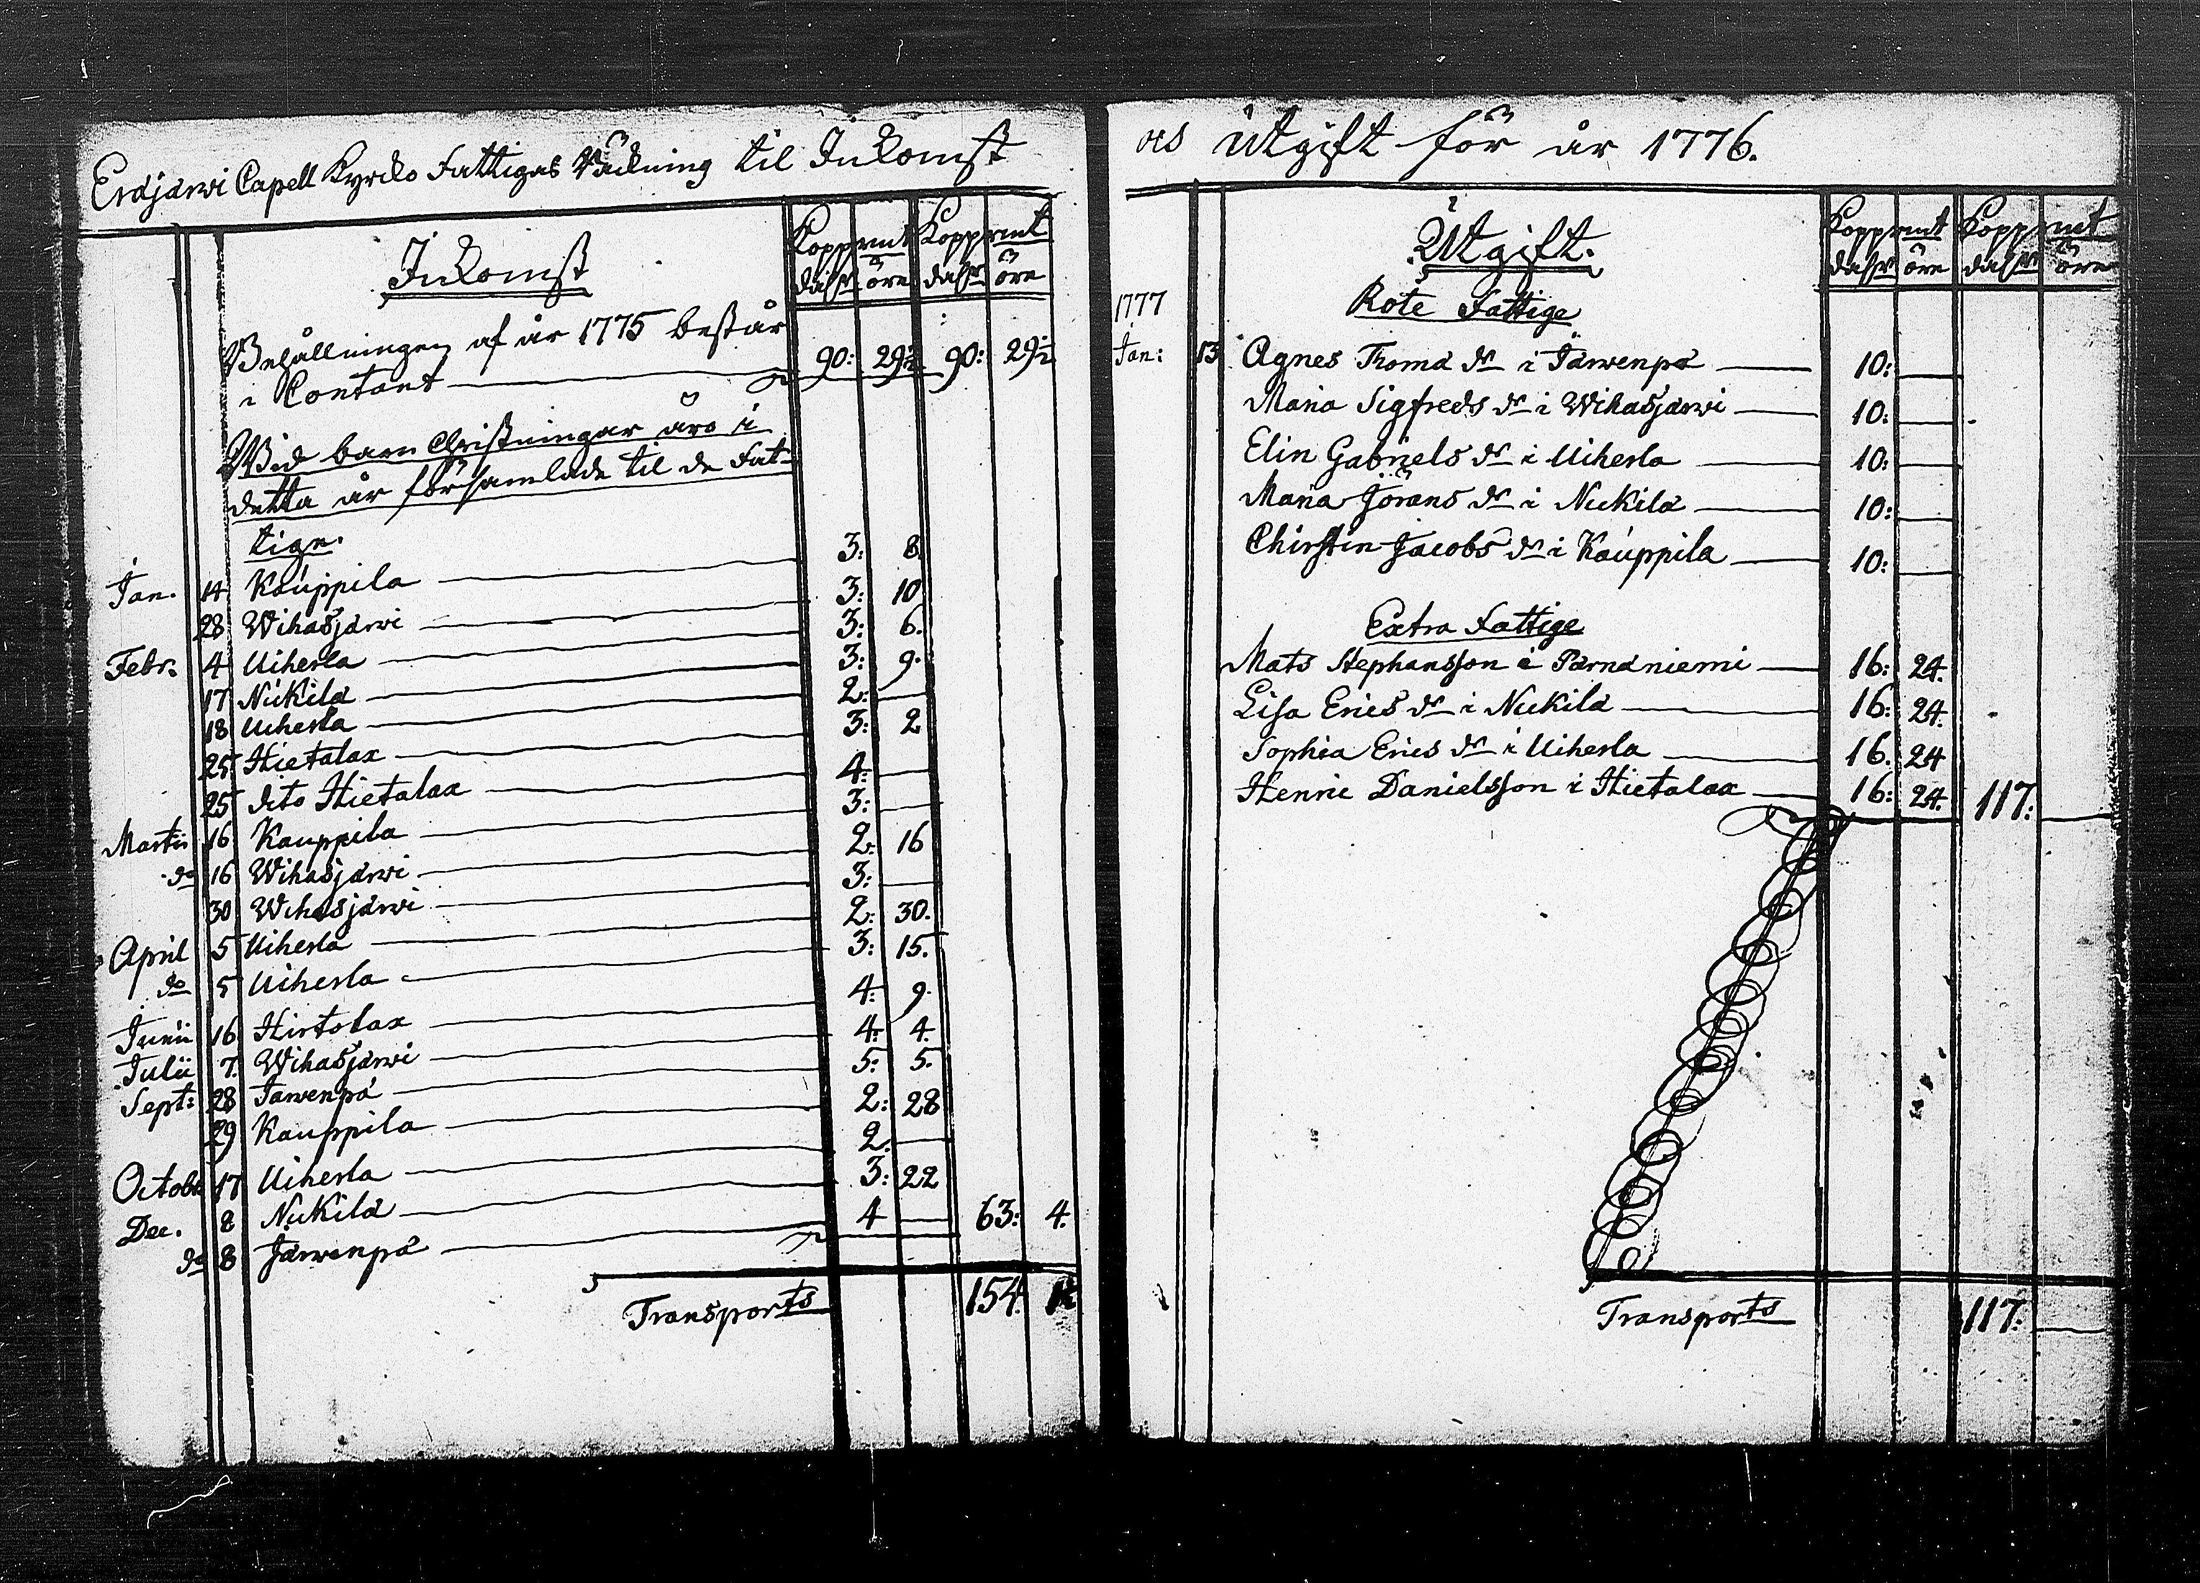 Eräjärwi Capell Kyrcko Fattigas Räckning til Inkomst
Inkomst
Koppmt Koppmt
dalr öre dalr öre
Behållningen af år 1775 består
i Contant 90: 29½ 90: 29½
Wid barn Christningar äro i
detta år församlade til de Fat-
tige.
Jan. 14 Kauppila 3: 8
28 Wihasjärwi 3: 10
Febr. 4 Uiherla 3: 6.
17 Nickilä 3: 9.
18 Uiherla 2:
25 Hietalax 3: 2
25 dito Hietalax 4:
Martii 16 Kauppila 3:
do 16 Wihasjärwi 2: 16
30 Wihasjärwi 3:
April 5 Uiherla 2: 30.
do 5 Uiherla 3: 15.
Junii 16 Hirtolax 4: 9.
Julii 7. Wihasjärwi 4: 4.
Sept: 28 Järwenpä 5: 5.
29 Kauppila 2: 28
Octobr 17 Uiherla 2.
Dec. 8 Nickilä 3: 22
do 8 Järwenpä 4 63: 4.
Transports 154.
och Utgift för år 1776.
Utgift.
Koppmt Koppmt
dalr öre dalr öre
1777
Rote Fattige
Jan: 13 Agnes Thoma dr i Järwenpä 10:
Maria Sigfreds dr i Wihasjärwi 10:
Elin Gabriels dr i Uiherla 10:
Maria Jörans dr i Nickilä 10:
Chirstin Jacobs dr i Kauppila 10:
Extra Fattige
Mats Stephansson i Pärnäniemi 16: 24.
Lisa Erics dr i Nickilä 16: 24.
Sophia Erics dr i Uiherla 16. 24
Henric Danielsson i Hietalax 16: 24. 117:
Transports 117: